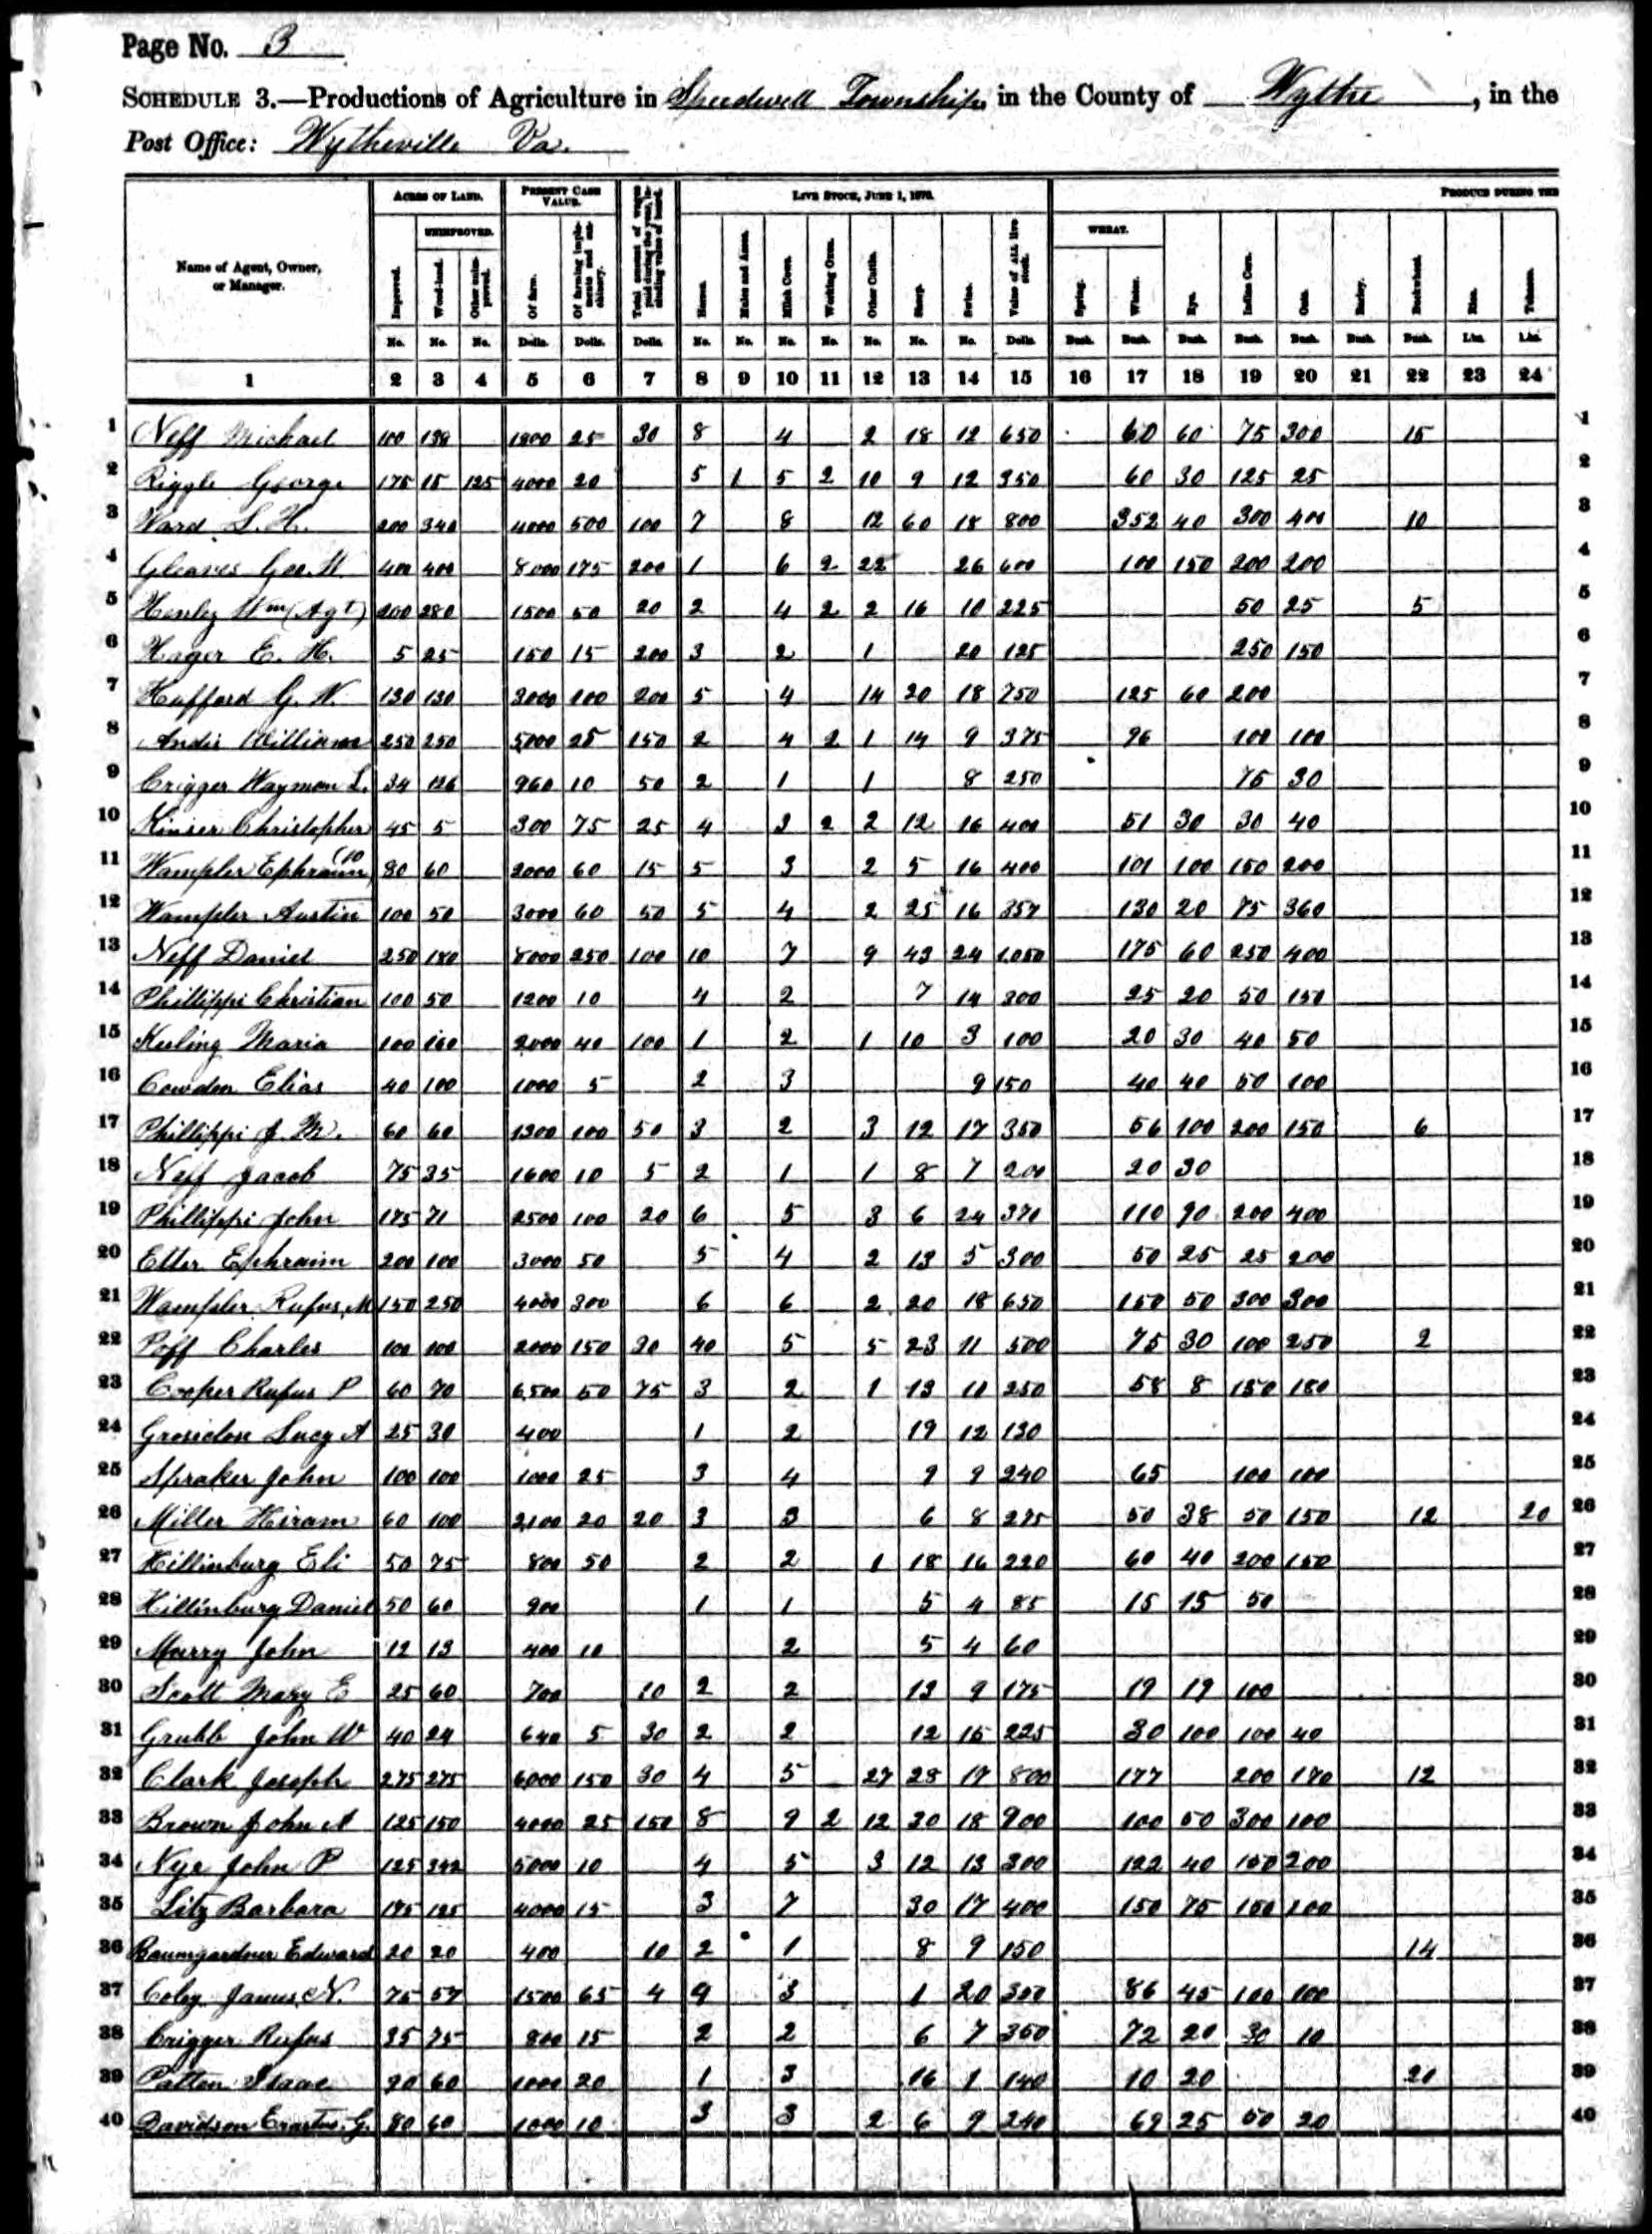 Page No. 3
SCHEDULE 3.—Productions of Agriculture in Speedwell Township in the County of Wythe, in the
Post Office: Wytheville Va.
ACRES OF LAND. PRESENT CASH VALUE. LIVE STOCK, JUNE 1, 1870. PRODUCE DURING THE
UNIMPROVED. WHEAT.
Name of Agent, Owner, or Manager. Improved. Wood-land. Other unimproved. Of farm. Of farming implements and machinery. Total amount of wages paid during the year, including value of board. Horses. Mules and Asses. Milch Cows. Working Oxen. Other Cattle. Sheep. Swine. Value of ALL live stock. Spring. Winter. Rye. Indian Corn. Oats. Barley. Buckwheat. Rice. Tobacco.
No. No. No. Dolls. Dolls. Dolls. No. No. No. No. No. No. No. Dolls. Bush. Bush. Bush. Bush. Bush. Bush. Bush. Lbs. Lbs.
1 2 3 4 5 6 7 8 9 10 11 12 13 14 15 16 17 18 19 20 21 22 23 24
1 Neff Michael 100 139 1800 25 30 8 4 2 18 12 650 60 60 75 300 15 1
2 Riggle George 175 15 125 4000 20 5 1 5 2 10 9 12 350 60 30 125 25 2
3 Ward L. H. 200 340 4000 500 100 7 8 12 60 18 800 352 40 300 400 10 3
4 Gleaves Geo. W. 400 400 8000 175 200 1 6 2 22 26 600 100 150 200 200 4
5 Henley Wm (Agt) 200 280 1500 50 20 2 4 2 2 16 10 225 50 25 5 5
6 Hager E. H. 5 25 150 15 200 3 2 1 20 125 250 150 6
7 Hufford G. W. 130 130 3000 100 200 5 4 14 20 18 750 125 60 200 7
8 Andis William 250 250 5000 25 150 2 4 2 1 14 9 375 96 100 100 8
9 Crigger Wayman L. 34 126 960 10 50 2 1 1 8 250 75 30 9
10 Kinser Christopher 45 5 300 75 25 4 3 2 2 12 16 400 51 30 30 40 10
11 Wampler Ephraim 80 60 2000 60 15 5 3 2 5 16 400 101 100 150 200 11
12 Wampler Austin 100 50 3000 60 50 5 4 2 25 16 357 130 20 75 360 12
13 Neff Daniel 250 180 8000 250 100 10 7 9 43 24 1050 175 60 250 400 13
14 Phillippi Christian 100 50 1200 10 4 2 7 14 300 25 20 50 150 14
15 Keeling Maria 100 160 2000 40 100 1 2 1 10 3 100 20 30 40 50 15
16 Cowden Elias 40 100 1000 5 2 3 9 150 40 40 50 100 16
17 Phillippi J. M. 60 60 1300 100 50 3 2 3 12 17 350 56 100 200 150 6 17
18 Neff Jacob 75 35 1600 10 5 2 1 1 8 7 200 20 30 18
19 Phillippi John 175 71 2500 100 20 6 5 3 6 24 370 110 90 200 400 19
20 Etter Ephraim 200 100 3000 50 5 4 2 13 5 300 50 25 25 200 20
21 Wampler Rufus M 150 250 4000 300 6 6 2 20 18 650 150 50 300 300 21
22 Poff Charles 100 100 2000 150 30 40 5 5 23 11 500 75 30 100 250 2 22
23 Cooper Rufus P 60 70 6,500 50 75 3 2 1 13 11 250 58 8 150 180 23
24 Grosiclose Lucy A 25 30 400 1 2 19 12 130 24
25 Spraker John 100 100 1000 25 3 4 9 9 240 65 100 100 25
26 Miller Hiram 60 100 2,100 20 20 3 3 6 8 275 50 38 50 150 12 20 26
27 Hillinburg Eli 50 75 800 50 2 2 1 18 16 220 60 40 200 150 27
28 Hillinburg Daniel 50 60 900 1 1 5 4 85 15 15 50 28
29 Murry John 12 13 400 10 2 5 4 60 29
30 Scott Mary E 25 60 700 10 2 2 13 9 175 19 19 100 30
31 Grubb John W 40 24 640 5 30 2 2 12 15 225 30 100 100 40 31
32 Clark Joseph 275 275 6000 150 30 4 5 27 28 17 800 177 200 170 12 32
33 Brown John A 125 150 4000 25 150 8 9 2 12 30 18 900 100 50 300 100 33
34 Nye John P 125 342 5000 10 4 5 3 12 13 300 122 40 150 200 34
35 Litz Barbara 175 125 4000 15 3 7 30 17 400 150 75 150 100 35
36 Baumgardner Edward 20 20 400 10 2 1 8 9 150 14 36
37 Coley James N. 75 57 1500 65 4 4 3 1 20 300 86 45 100 100 37
38 Crigger Rufus 35 75 800 15 2 2 6 7 350 72 20 30 10 38
39 Patton Isaac 90 60 1000 20 1 3 16 1 140 10 20 20 39
40 Davidson Erastus G. 80 60 1000 10 3 3 2 6 9 240 69 25 50 20 40